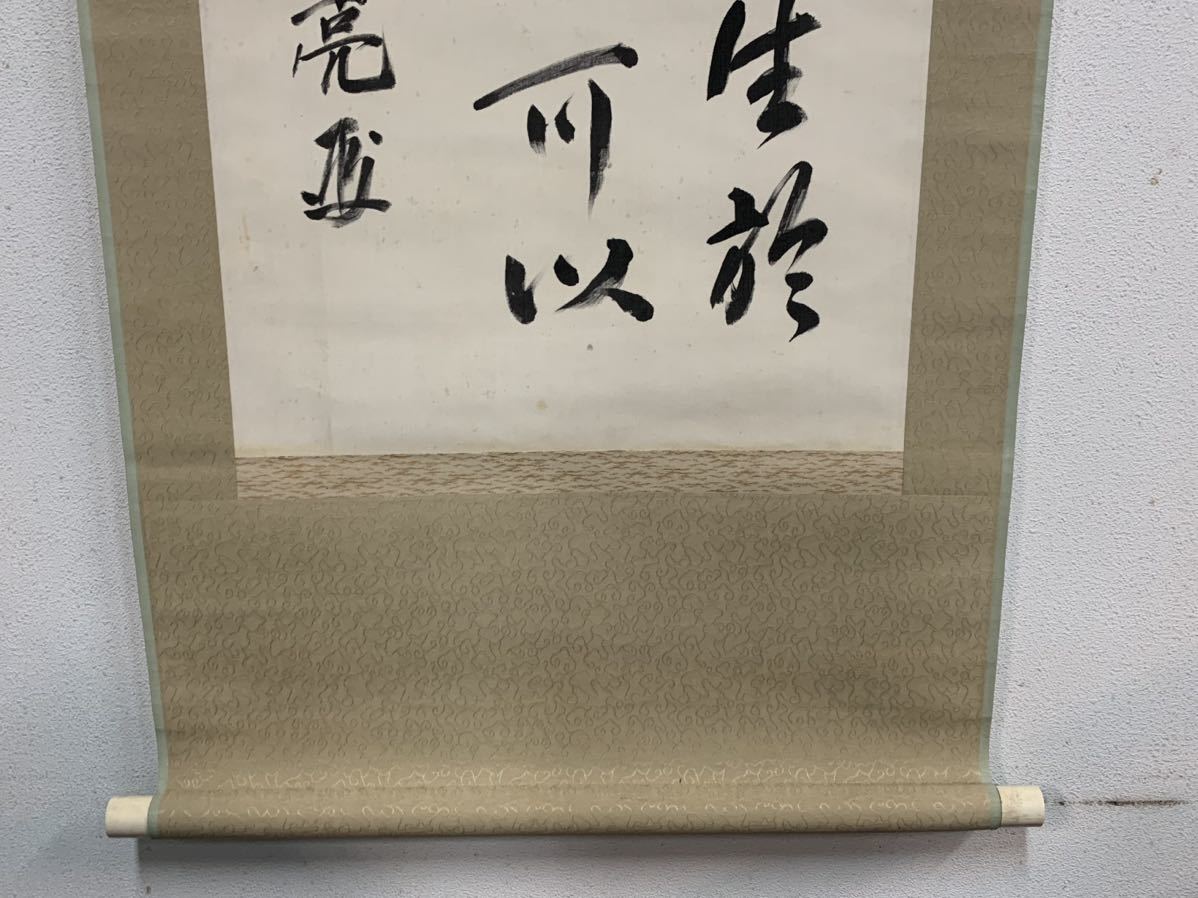 生於
可以
亮